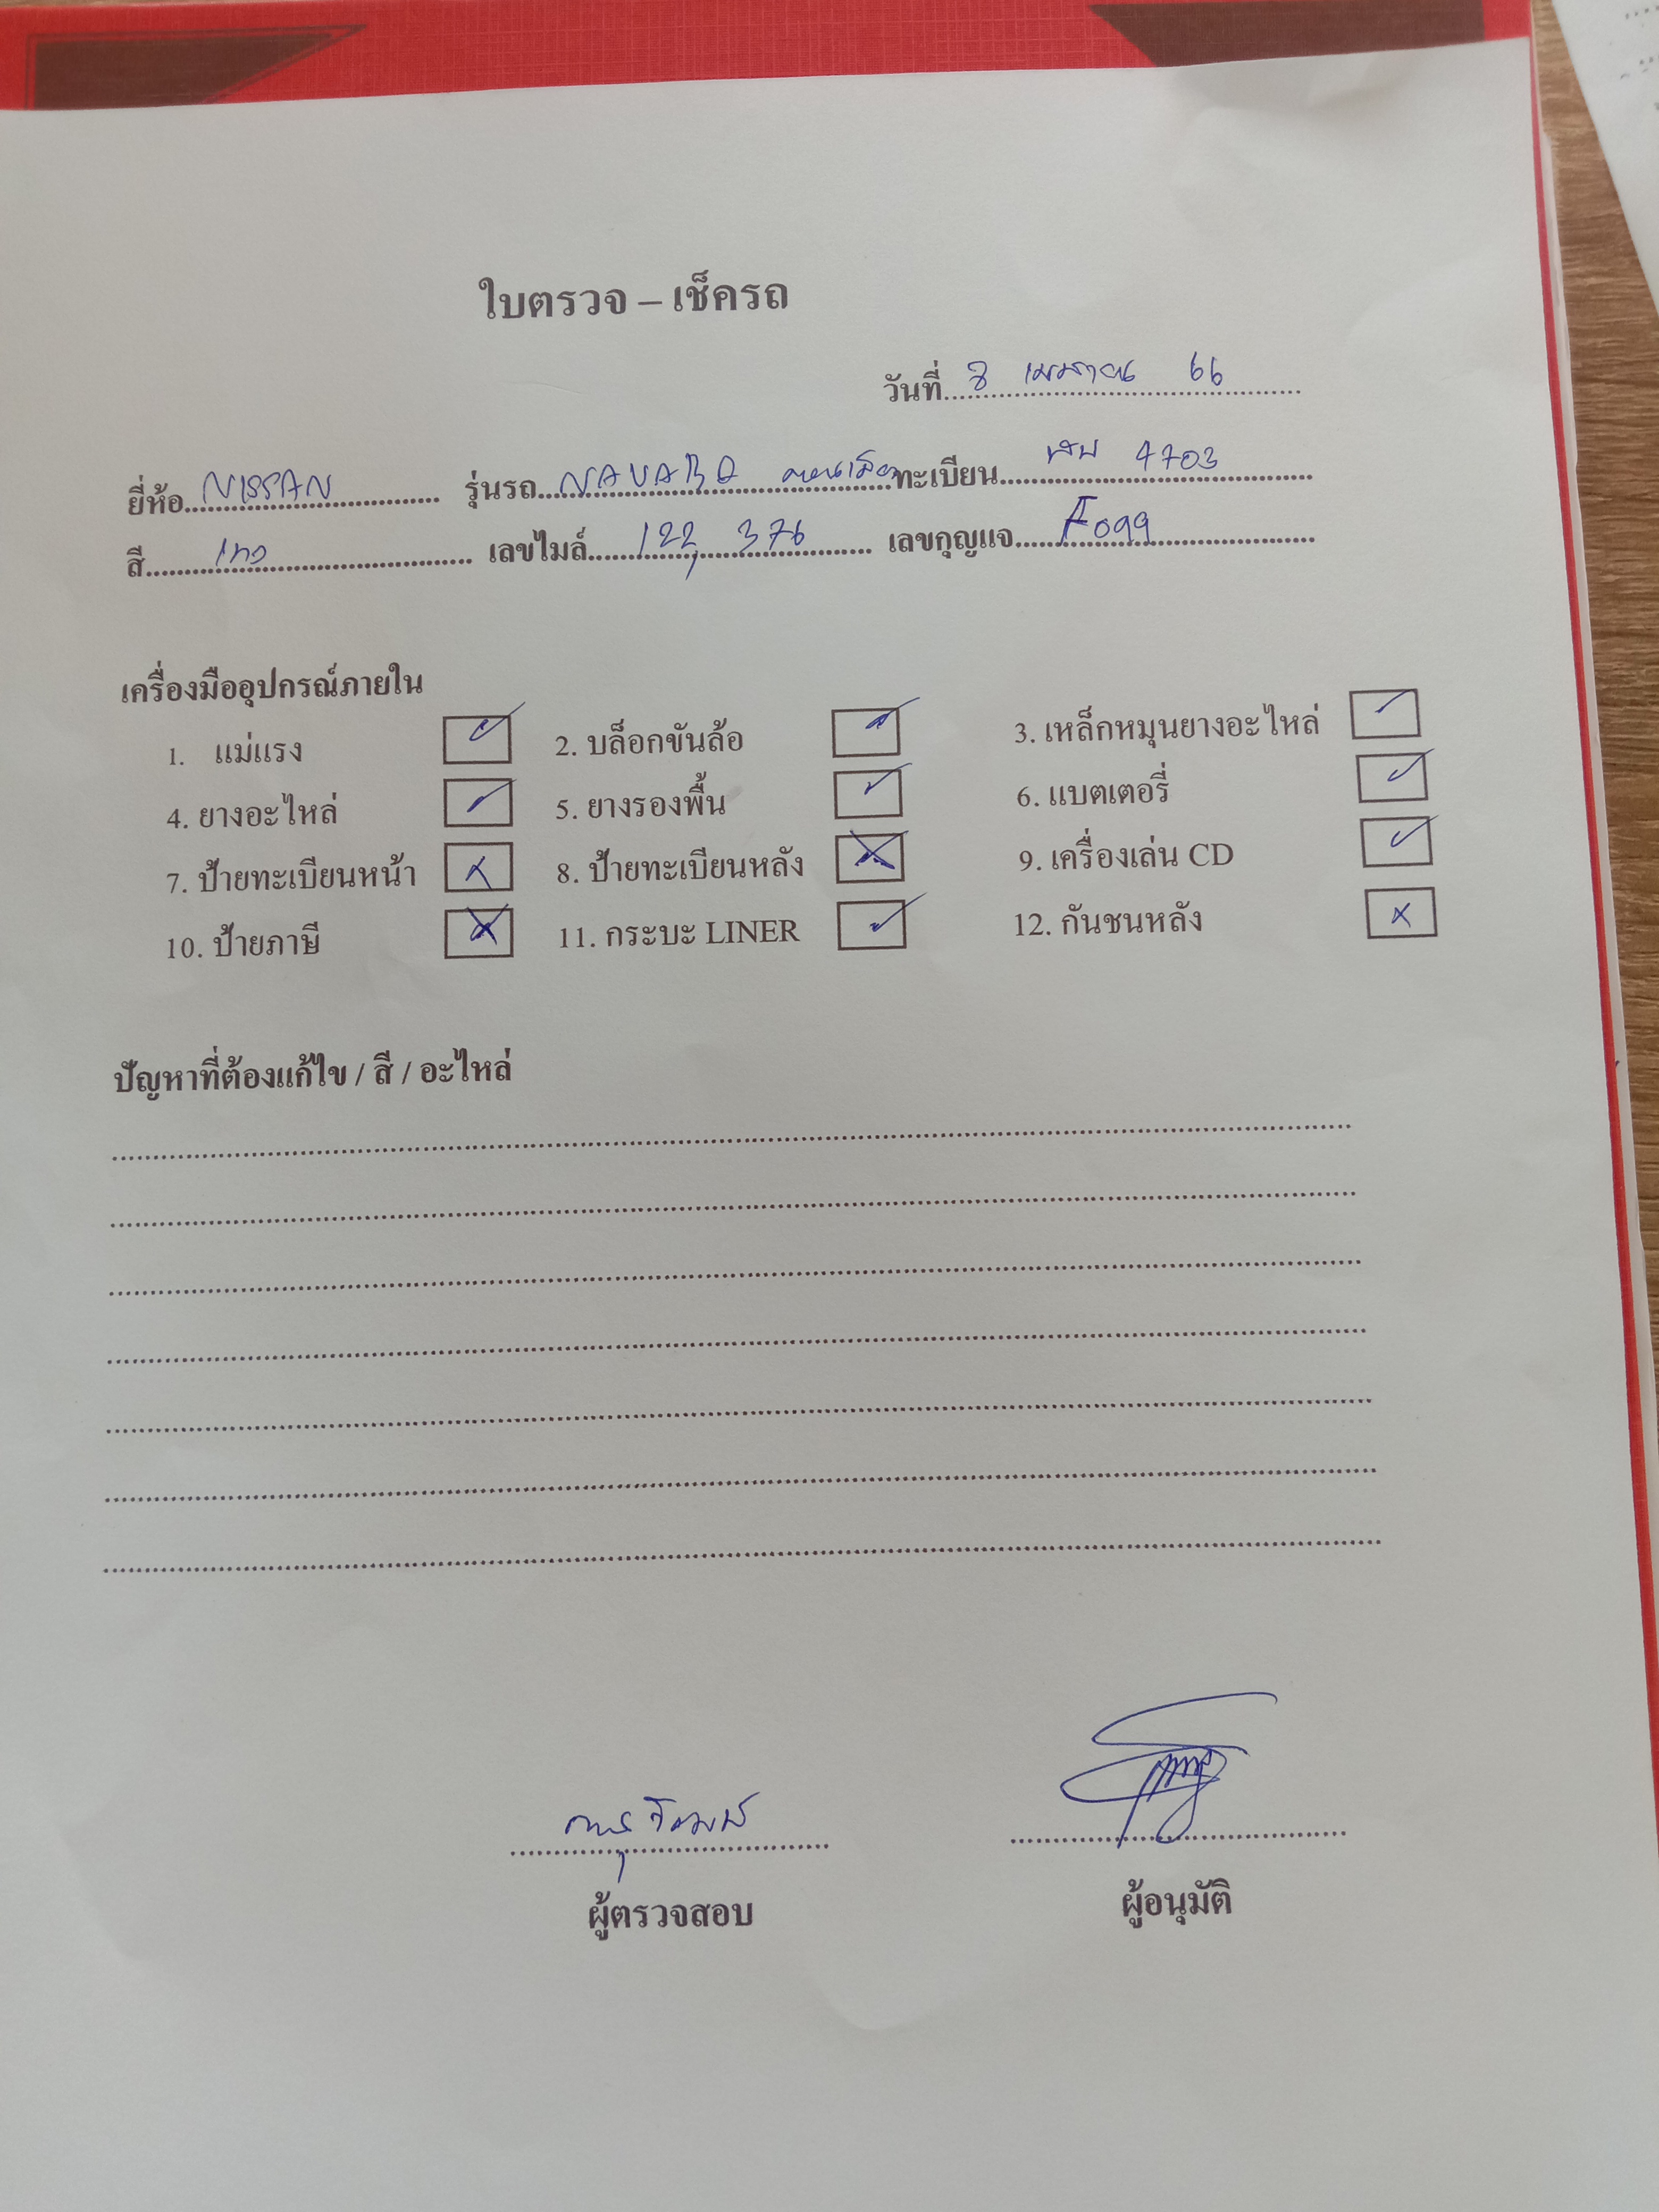 ใบตรวจ – เช็ครถ
วันที่ 8 เมษายน 66
ยี่ห้อ NISSAN รุ่นรถ NAVARA ทะเบียน 4703
สี เทา เลขไมล์ 122,376 เลขกุญแจ F099
เครื่องมืออุปกรณ์ภายใน
1. แม่แรง ✓ 2. บล็อกขันล้อ ✓ 3. เหล็กหมุนยางอะไหล่ ✓
4. ยางอะไหล่ ✓ 5. ยางรองพื้น ✓ 6. แบตเตอรี่ ✓
7. ป้ายทะเบียนหน้า ✗ 8. ป้ายทะเบียนหลัง ✗ 9. เครื่องเล่น CD ✓
10. ป้ายภาษี ✗ 11. กระบะ LINER ✓ 12. กันชนหลัง ✗
ปัญหาที่ต้องแก้ไข / สี / อะไหล่
ผู้ตรวจสอบ ผู้อนุมัติ